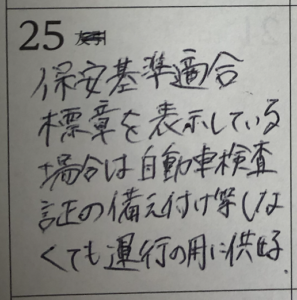 25
保安基準適合
標章を表示している
場合は自動車検査
証の備え付け等しな
くても運行の用に供好.